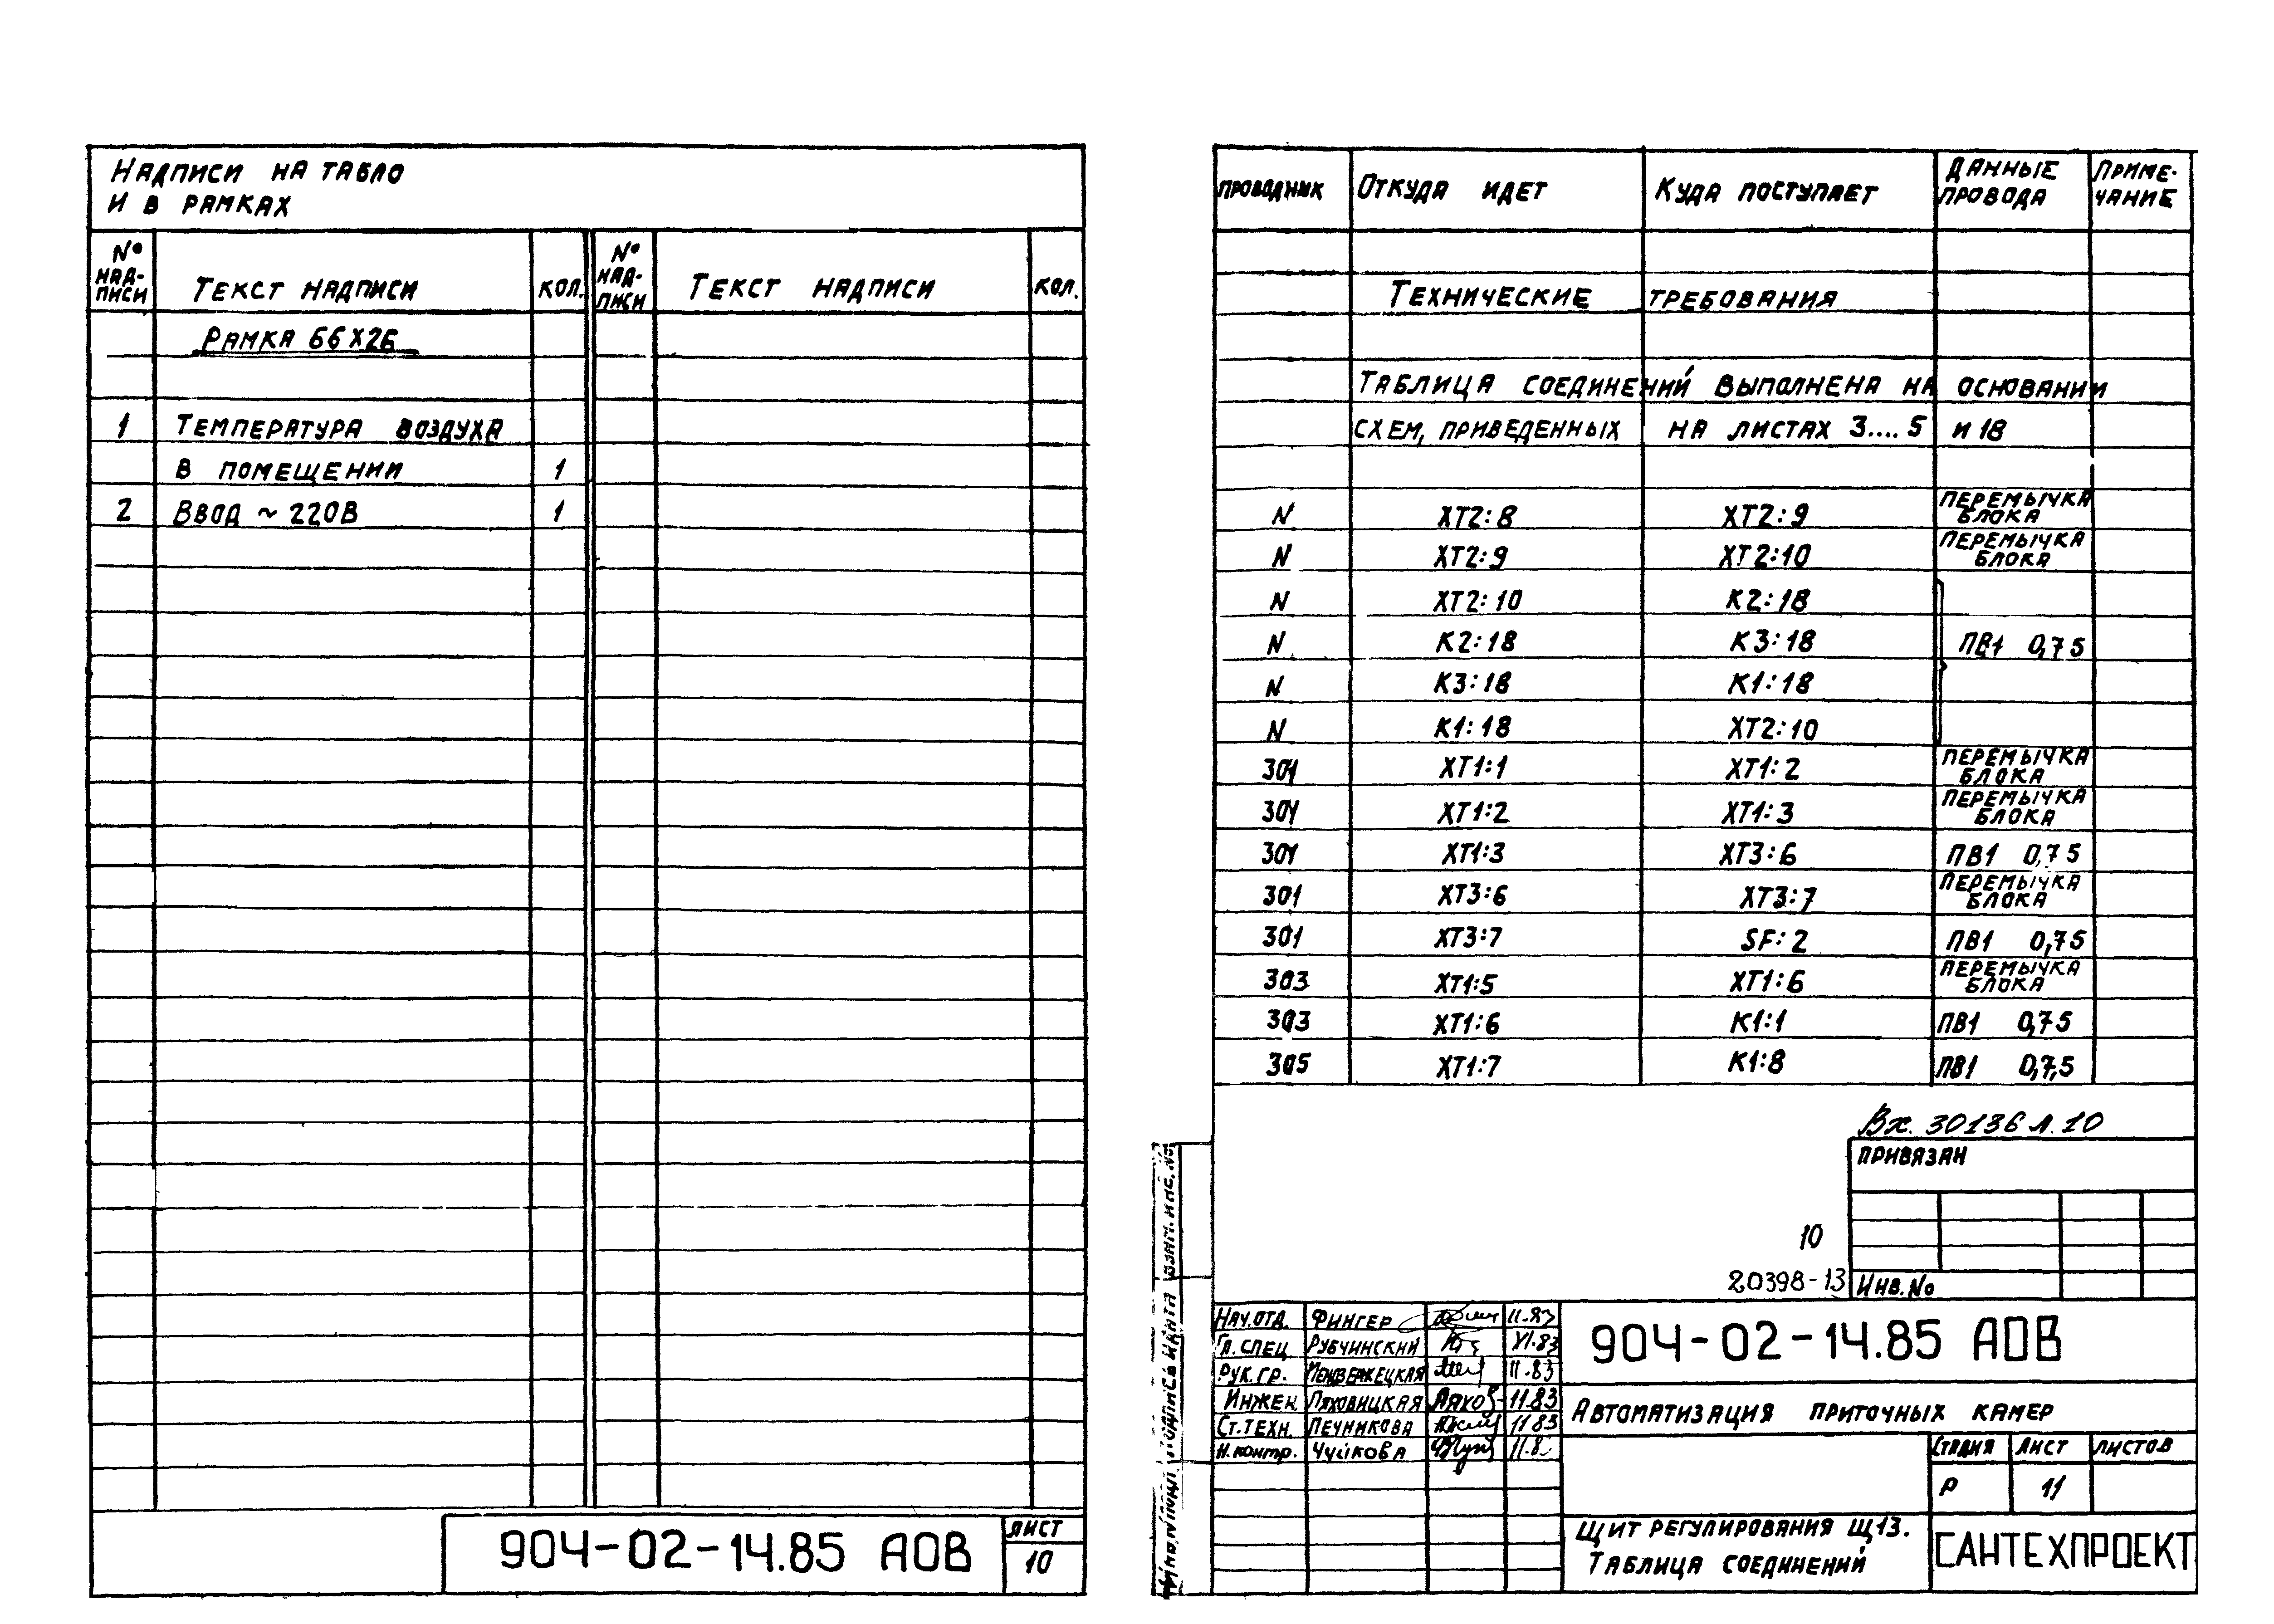 Надписи на табло
и в рамках
№ надписи Текст надписи кол. № надписи Текст надписи кол.
Рамка 66х26
1 Температура воздуха
в помещении 1
2 Ввод ~ 220В 1
904-02-14.85 АОВ
лист
10
проводник Откуда идет Куда поступает Данные провода Примечание
Технические требования
Таблица соединений выполнена на основании
схем, приведенных на листах 3....5 и 18
N ХТ2:8 ХТ2:9 перемычка блока
N ХТ2:9 ХТ2:10 перемычка блока
N ХТ2:10 К2:18
N К2:18 К3:18 ПВ1 0,75
N К3:18 К1:18
N К1:18 ХТ2:10
301 ХТ1:1 ХТ1:2 перемычка блока
301 ХТ1:2 ХТ1:3 перемычка блока
301 ХТ1:3 ХТ3:6 ПВ1 0,75
301 ХТ3:6 ХТ3:7 перемычка блока
301 ХТ3:7 SF:2 ПВ1 0,75
303 ХТ1:5 ХТ1:6 перемычка блока
303 ХТ1:6 К1:1 ПВ1 0,75
305 ХТ1:7 К1:8 ПВ1 0,75
Вх. 30136 л.10
Привязан
10
20398-13 Инв.No
Нач.отд. Фингер 11.83
Гл.спец Рубчинский XI.83
Рук.гр. 11.83
Инжен. Ляховицкая Ляхов 11.83
Ст.техн. Печникова 11 83
Н.контр. Чуйкова
904-02-14.85 АОВ
Автоматизация приточных камер
Стадия лист листов
Р 11
Щит регулирования Щ13.
Таблица соединений
САНТЕХПРОЕКТ
Инв.№подл. Подпись и дата Взам.инв.№